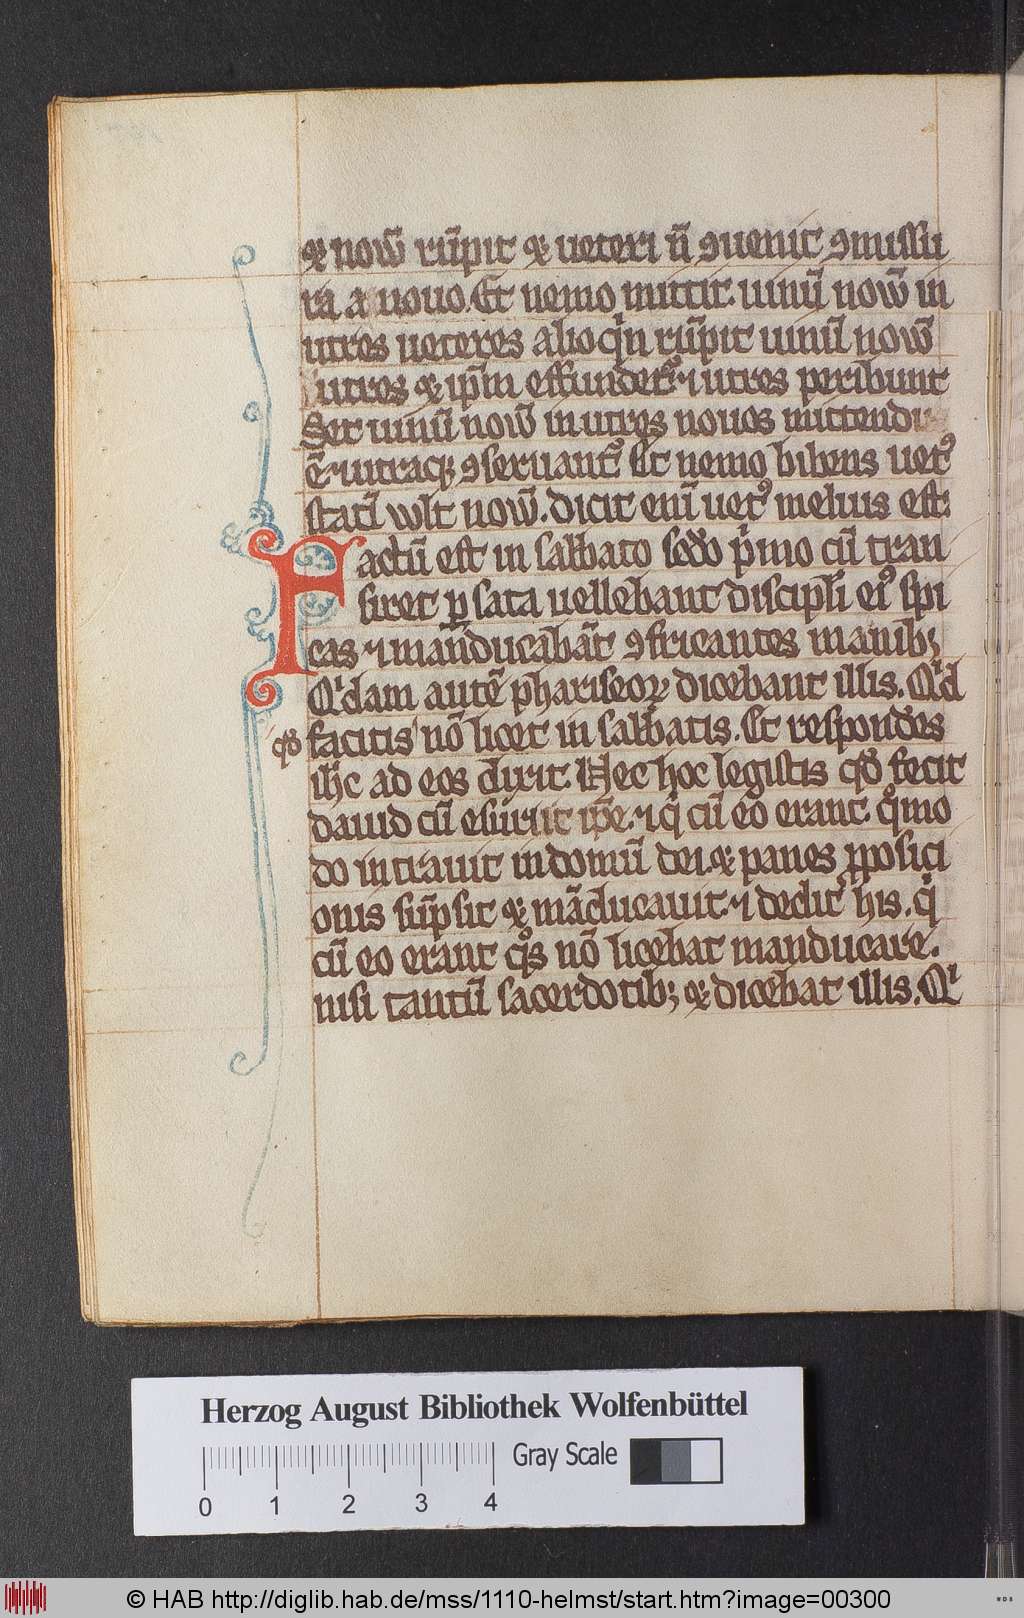 ⁊ nouū rūpit ⁊ ueteri ñ ꝯuenit ꝯmissu
ra a nouo. Et nemo mittit uinū nouū in
utres ueteres alioq̇n rūpit uinū nouū
utres ⁊ ip̄m effundet᷑ ⁊ utres peribunt
Set uinū nouū in utres nouos mittendū
ē ⁊ utraqꝫ ꝯseruant᷑ Et nemo bibens uet᷑
statī uult nouū. dicit enī uet᷒ melius est.
Factū est in sabbato scd̄o p̄mo cū tran
siret ꝑ sata uellebant discipl̄i ei᷒ spi
cas ⁊ mānducabāt ꝯfricantes manibꝫ
Qͥdam autē phariseoꝝ dicebant illis. Qͥd
qd̄ facitis nō licet in sabbatis. Et respondēs
ihc̄ ad eos dixit. Nec hoc legistis qd̄ fecit
dauid cū esuriit ip̄e. ⁊ q̇ cū eo erant. qͦmo
do intrauit in domū dei. ⁊ panes ꝓposici
onis sūpsit ⁊ māducauit. ⁊ dedit his. q̇
cū eo erant qͦs nō licebat manducare.
nisi tantū sacerdotibꝫ ⁊ dicebat illis. Qͥ
Herzog August Bibliothek Wolfenbüttel
Gray Scale
0 1 2 3 4
© HAB http://diglib.hab.de/mss/1110-helmst/start.htm?image=00300